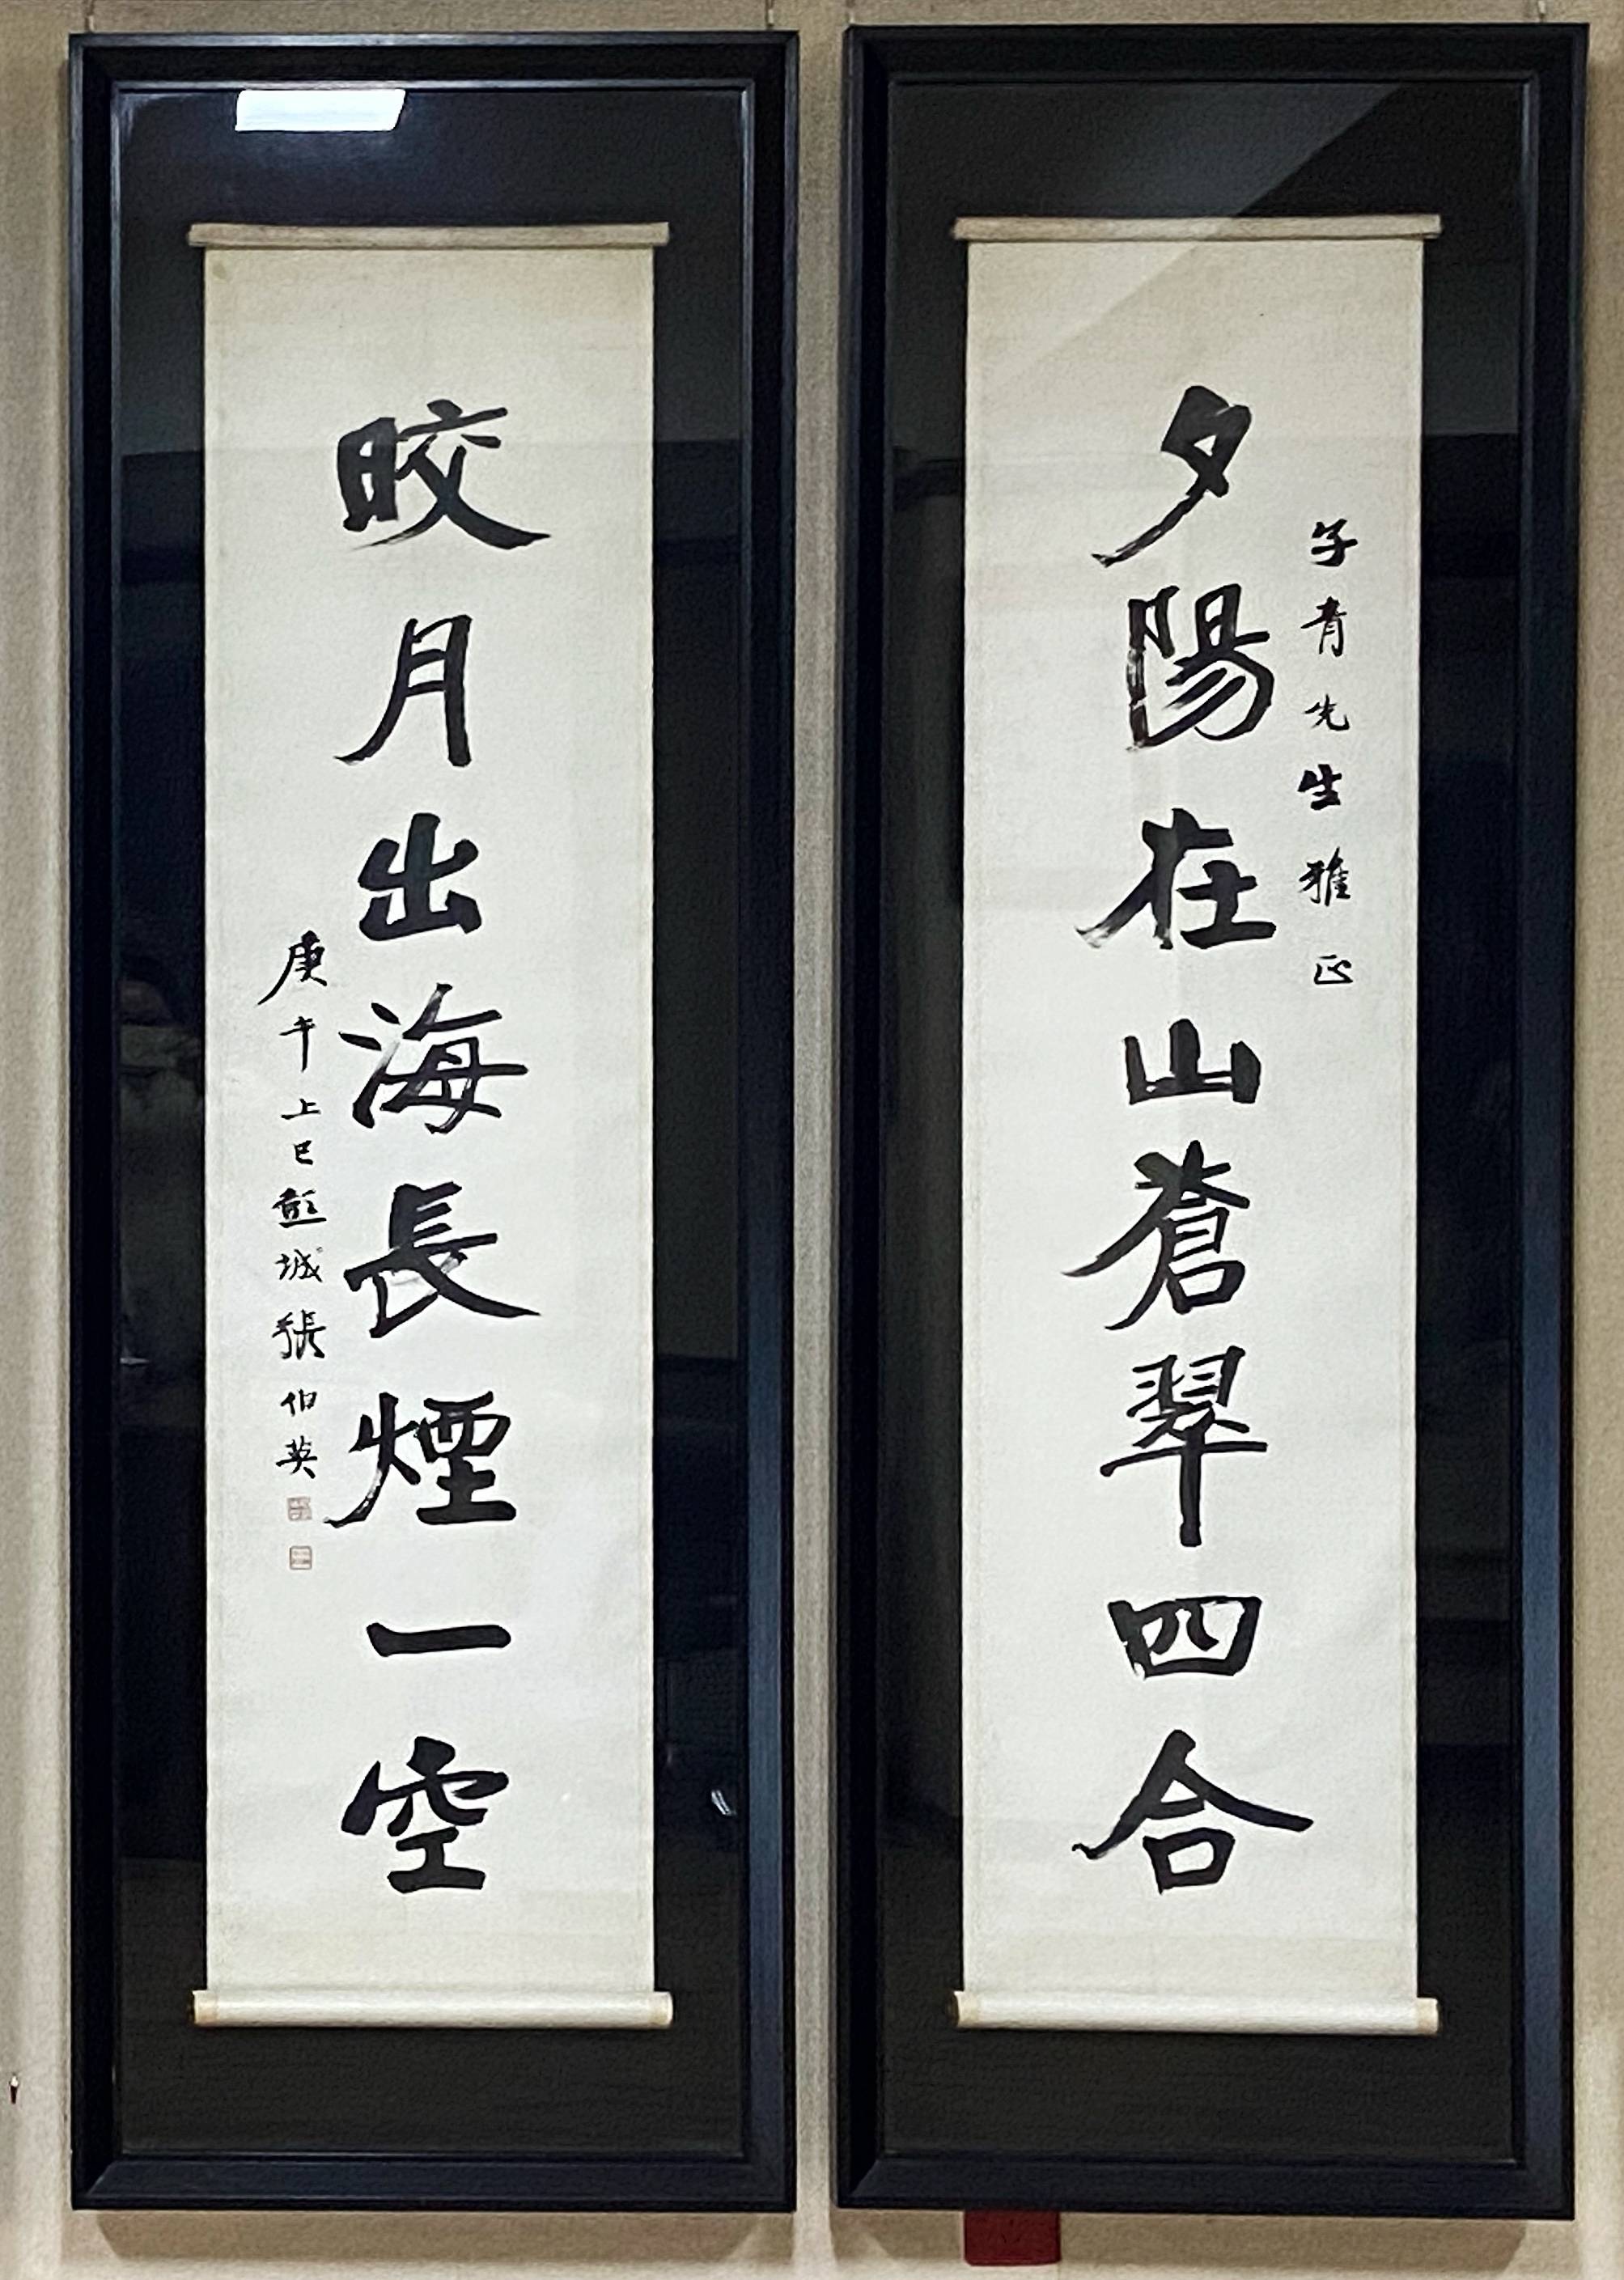 子青先生雅正
夕陽在山蒼翠四合
晈月出海長煙一空
庚午上巳彭城張伯英